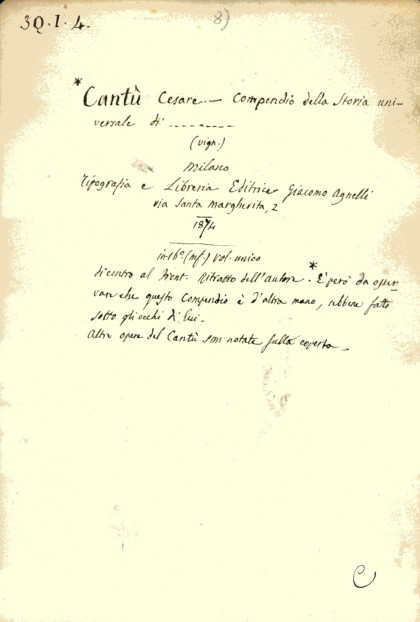 3Q.I.4.
8)
* Cantù Cesare. — Compendio della Storia uni-
versale di ........
(vign.)
Milano
Tipografia e Libreria Editrice Giacomo Agnelli
via Santa Margherita, 2
1874
in-16° (mf.) vol. unico
dicontro al front. Ritratto dell'autore. * È però da osser-
vare che questo Compendio è d'altra mano, sebbene fatto
sotto gli occhi di lui.
Altre opere del Cantù son notate sulla coperta.
C